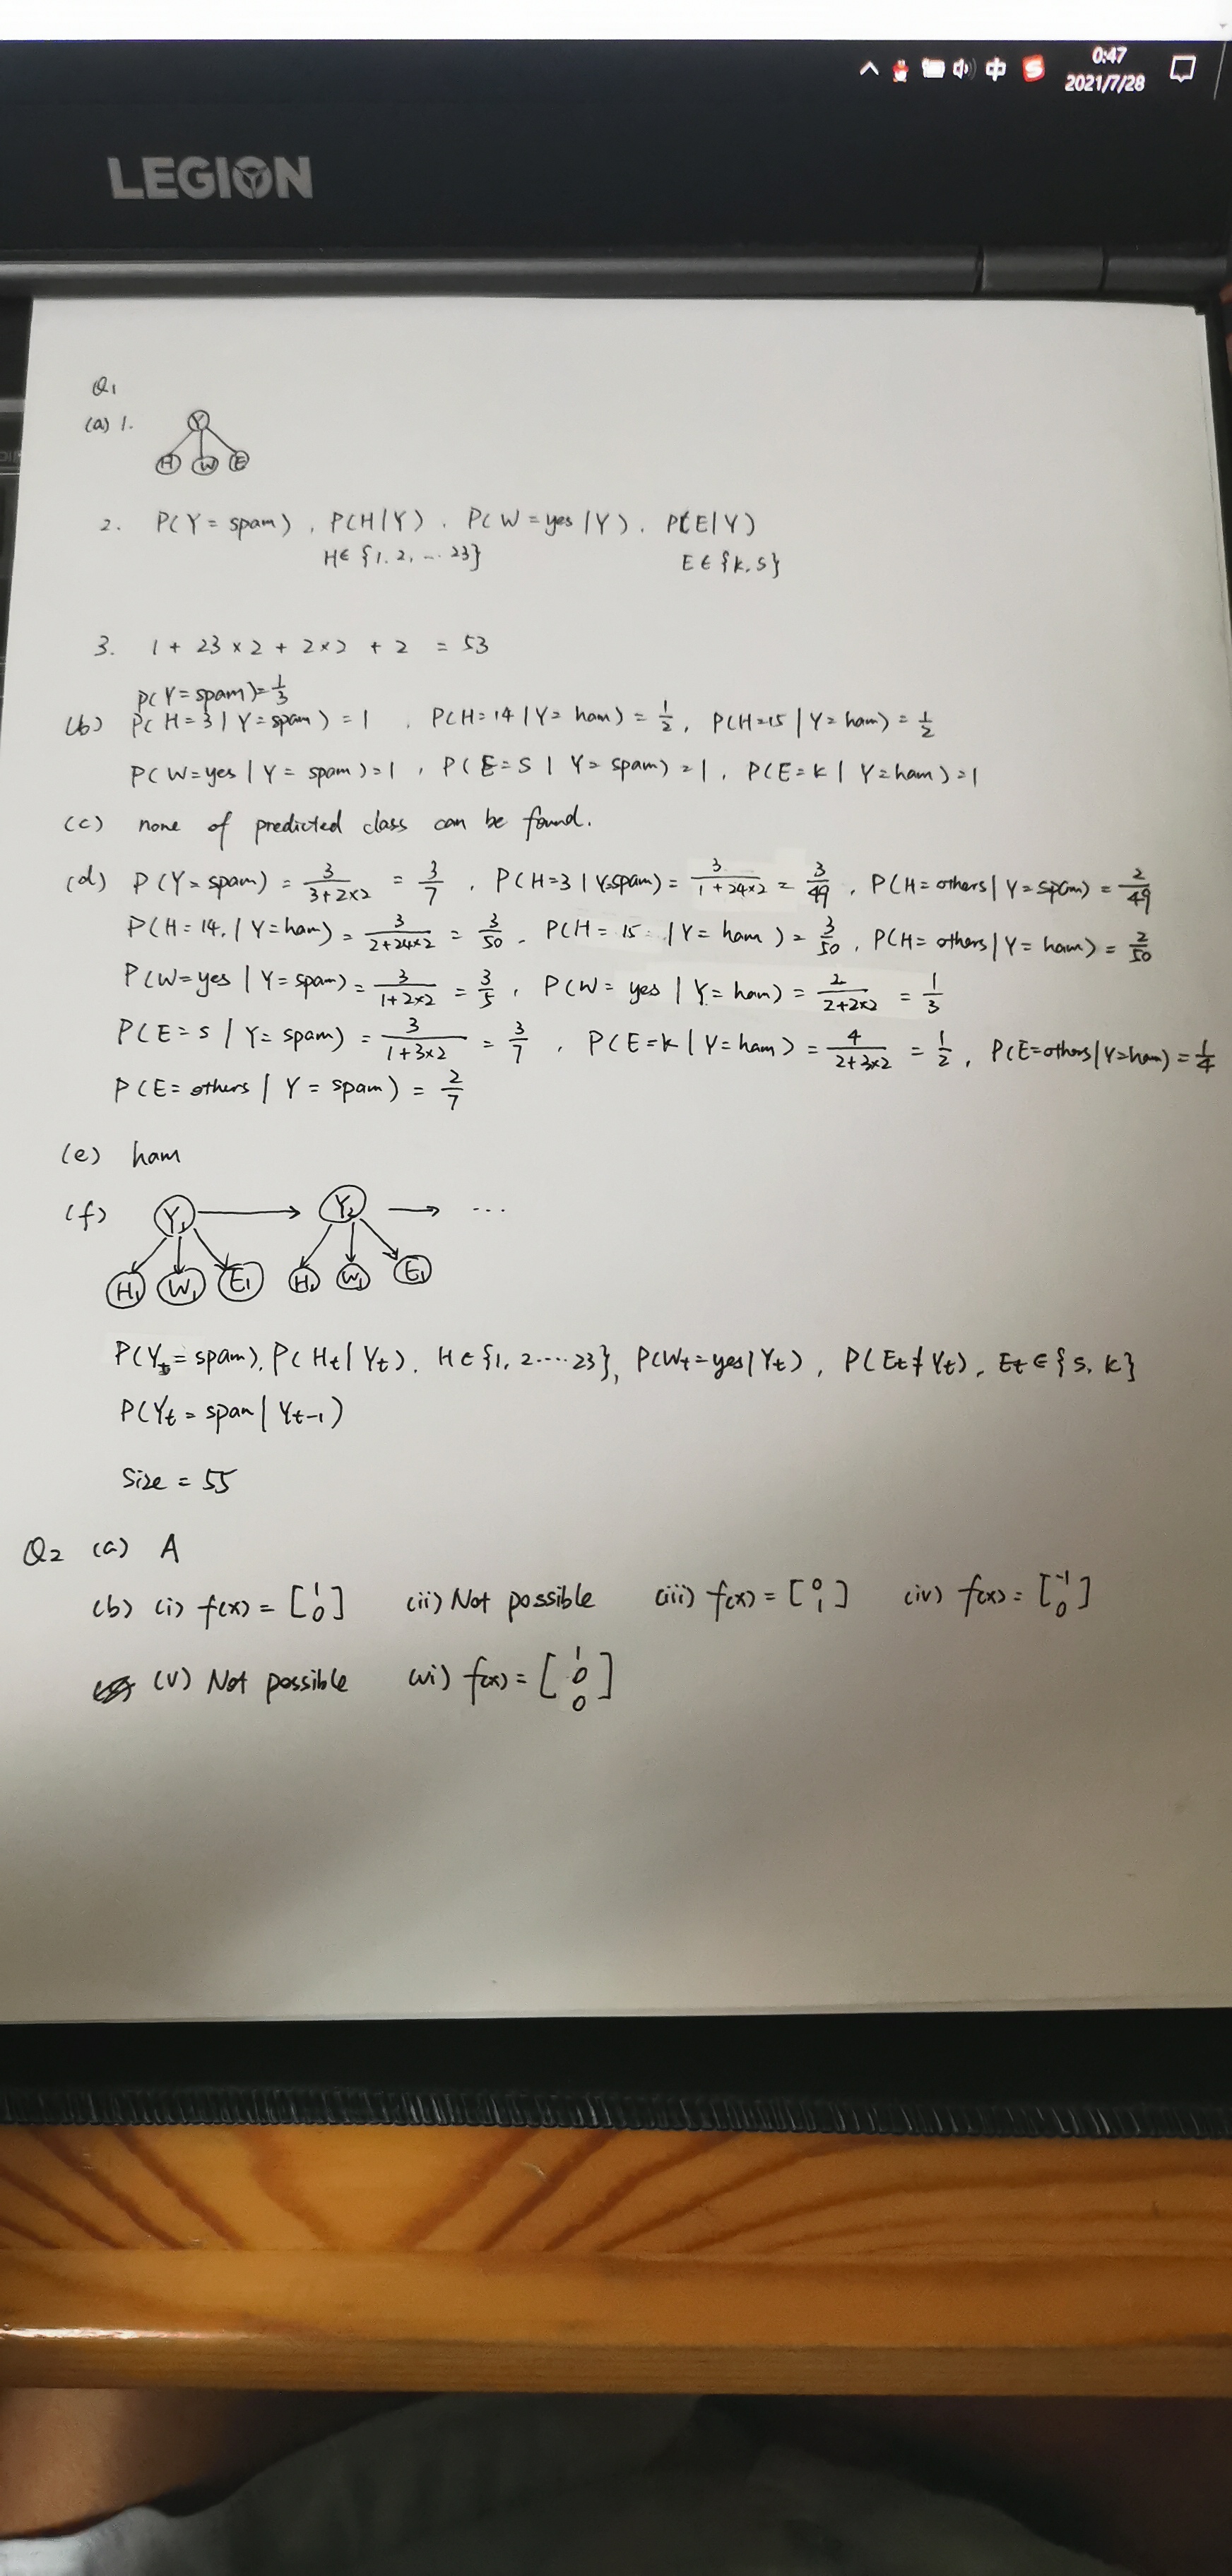 0:47
中 S
2021/7/28
LEGION
Q1
(a) 1.
Y
H W E
2. P(Y = spam), P(H|Y), P(W = yes|Y), P(E|Y)
H∈{1, 2, ... 23} E∈{k, s}
3. 1 + 23 × 2 + 2×2 + 2 = 53
P(Y = spam) = 1/3
(b) P(H = 3 | Y = spam) = 1, P(H=14 | Y = ham) = 1/2, P(H=15 | Y = ham) = 1/2
P(W = yes | Y = spam) = 1, P(E = S | Y = spam) = 1, P(E = k | Y = ham) = 1
(c) none of predicted class can be found.
(d) P(Y = spam) = 3/(3+2×2) = 3/7, P(H=3 | Y=spam) = 3/(1+24×2) = 3/49, P(H = others | Y = spam) = 2/49
P(H = 14. | Y = ham) = 3/(2+24×2) = 3/50, P(H = 15 | Y = ham) = 3/50, P(H = others | Y = ham) = 2/50
P(W = yes | Y = spam) = 3/(1+2×2) = 3/5, P(W = yes | Y = ham) = 2/(2+2×2) = 1/3
P(E = s | Y = spam) = 3/(1+3×2) = 3/7, P(E = k | Y = ham) = 4/(2+3×2) = 1/2, P(E=others | Y=ham) = 1/4
P(E = others | Y = spam) = 2/7
(e) ham
(f) Y1 → Y2 → ...
H1 W1 E1 H1 W1 E1
P(Yt = spam), P(Ht | Yt), H∈{1, 2 .... 23}, P(Wt = yes | Yt), P(Et | Yt), Et∈{s, k}
P(Yt = span | Yt-1)
Size = 55
Q2 (a) A
(b) (i) f(x) = [1 0] (ii) Not possible (iii) f(x) = [0 1] (iv) f(x) = [-1 0]
(v) Not possible (vi) f(x) = [1 0 0]